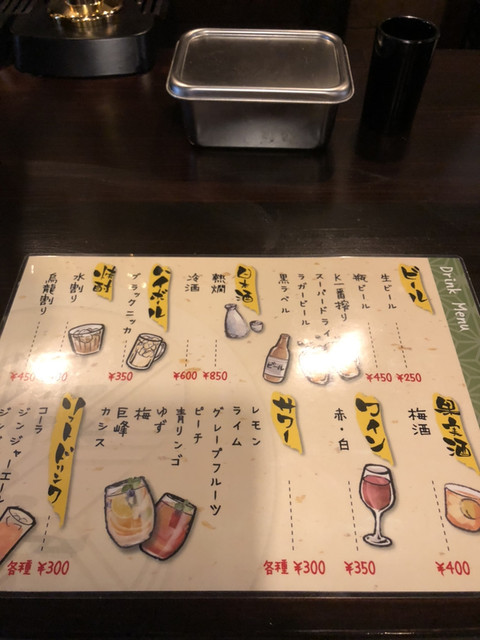 Drink Menu
ビール
生ビール
¥250
瓶ビール
¥450
K一番搾り
スーパードライ
ラガービール
黒ラベル
ビール
日本酒
熱燗
¥850
冷酒
¥600
ハイボール
ブラックニッカ
¥350
焼酎
水割り
烏龍割り
¥450
果実酒
梅酒
¥400
ワイン
赤・白
¥350
サワー
レモン
ライム
グレープフルーツ
ピーチ
青リンゴ
ゆず
梅
巨峰
カシス
各種 ¥300
ソフトドリンク
コーラ
ジンジャーエール
各種 ¥300